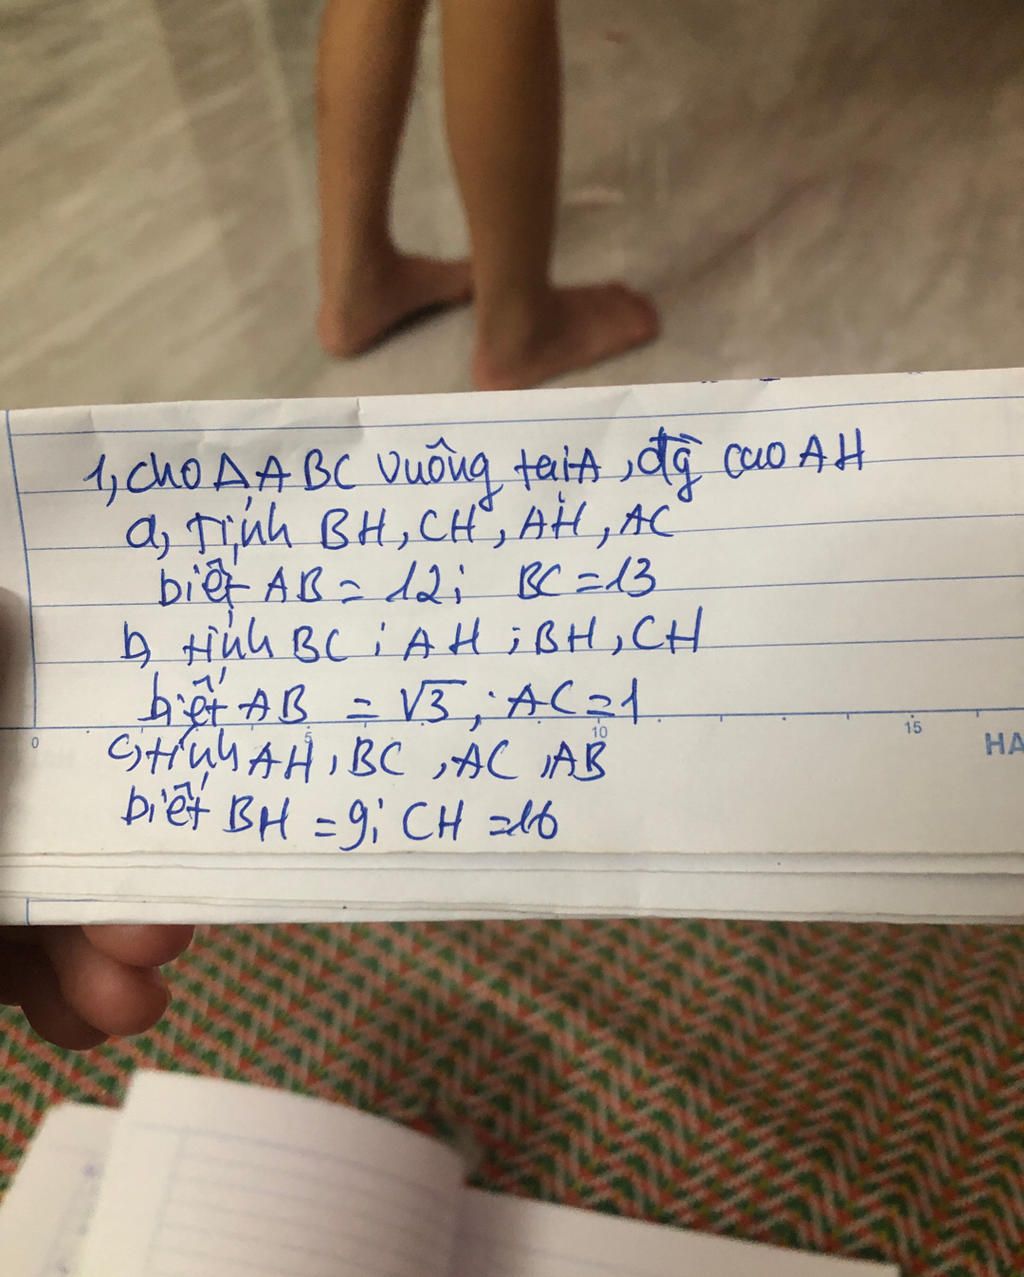 1, cho Δ ABC vuông tại A, đg cao AH
a, Tính BH, CH, AH, AC
biết AB = 12; BC = 13
b, tính BC; AH; BH, CH
biết AB = √3; AC = 1
0 5 10 15 HA
c, tính AH, BC, AC, AB
biết BH = 9; CH = 16